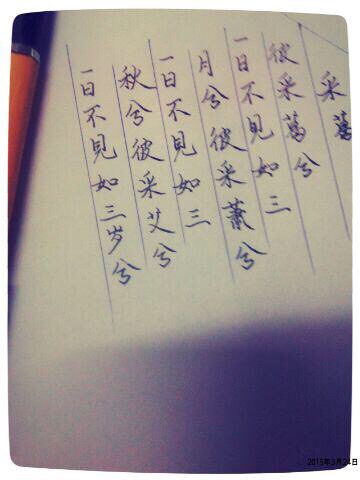 采葛
彼采葛兮
一日不見如三
月兮彼采蕭兮
一日不見如三
秋兮彼采艾兮
一日不見如三岁兮
2015年3月24日